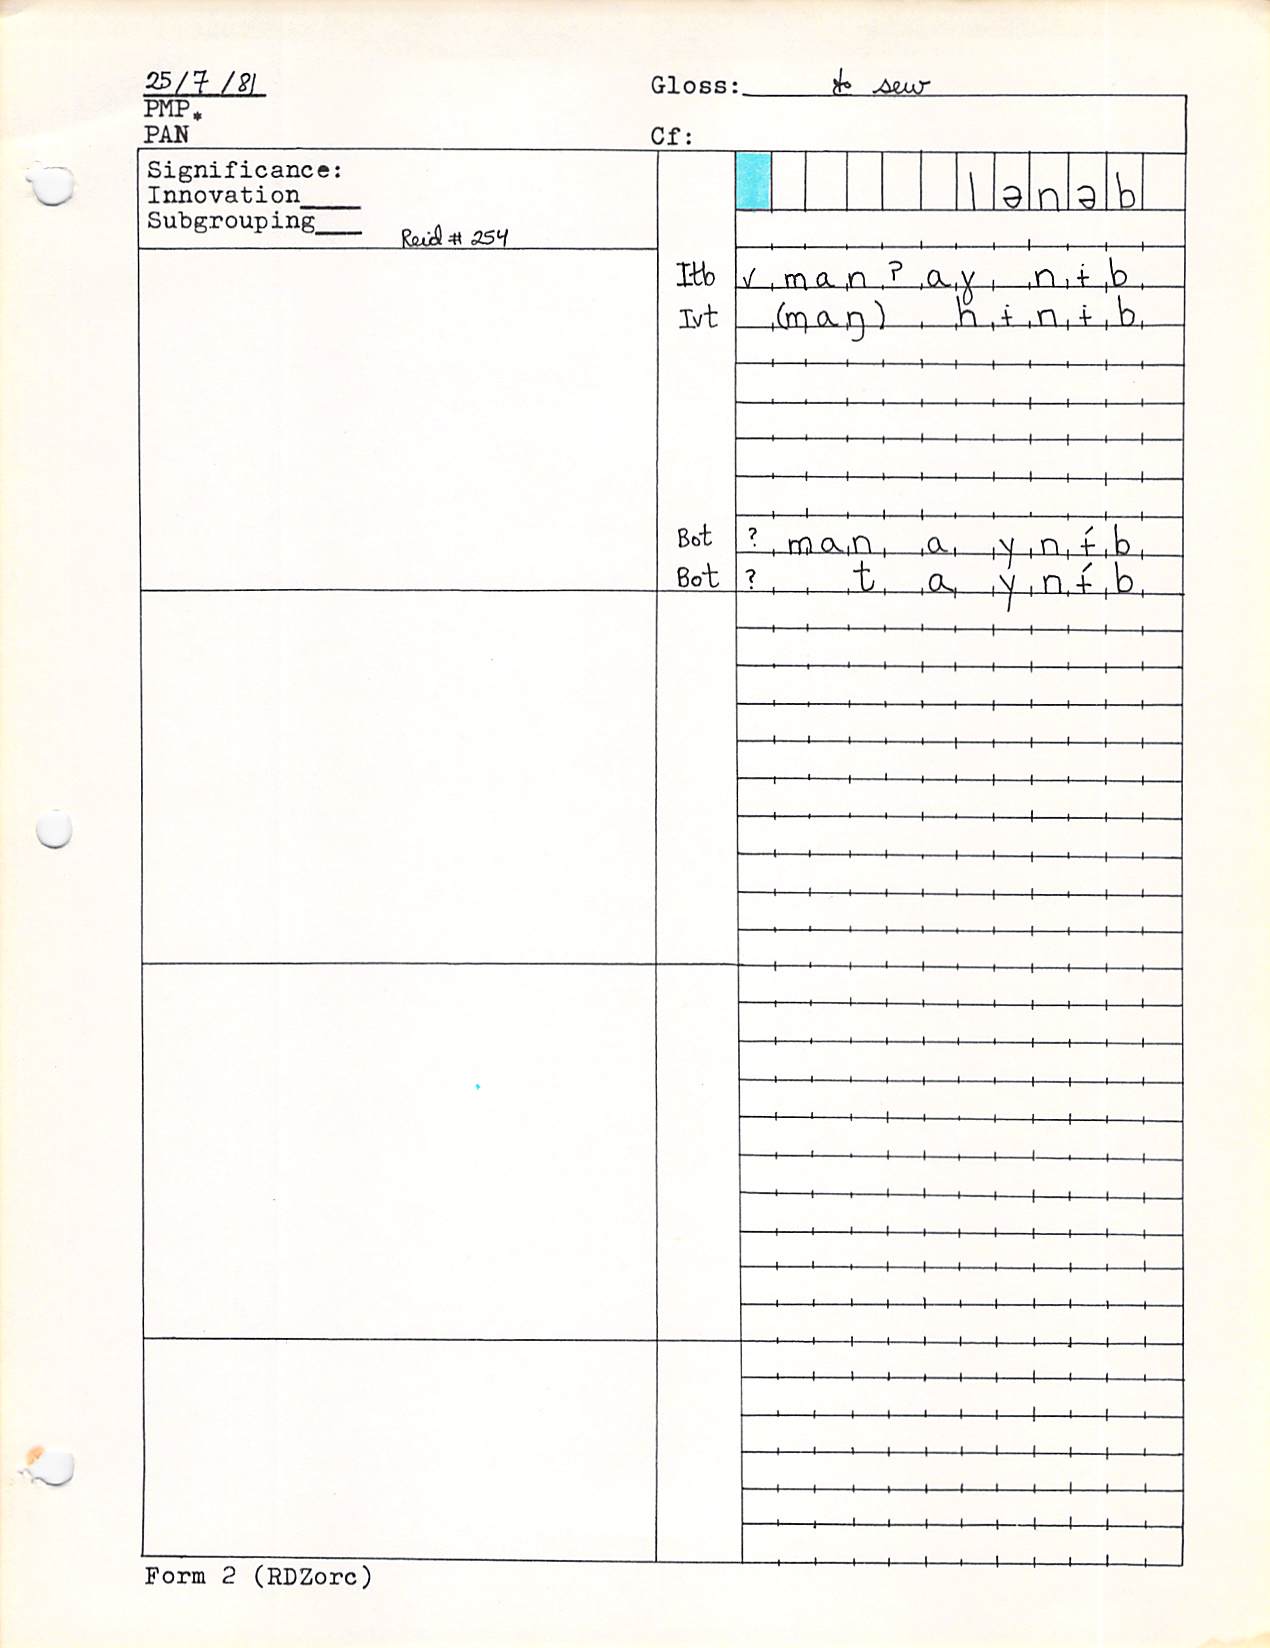 25/7/81
Gloss: to sew
PMP*
PAN
Cf:
Significance:
Innovation____
Subgrouping____
Reid # 254
lənəb
Itb ✓ manʔay nɨb
Ivt (maŋ) hɨnɨb
Bot ? man a ynɨ́b
Bot ? t a ynɨ́b
Form 2 (RDZorc)